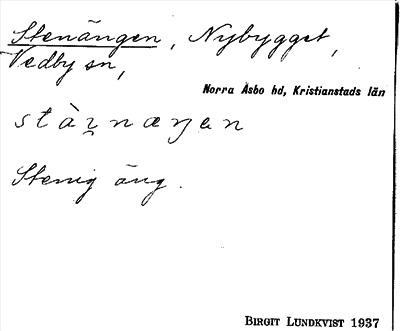 Stenängen, Nybygget,
Vedby sn,
Norra Åsbo hd, Kristianstads län
Stenig äng.
BIRGIT LUNDKVIST 1937